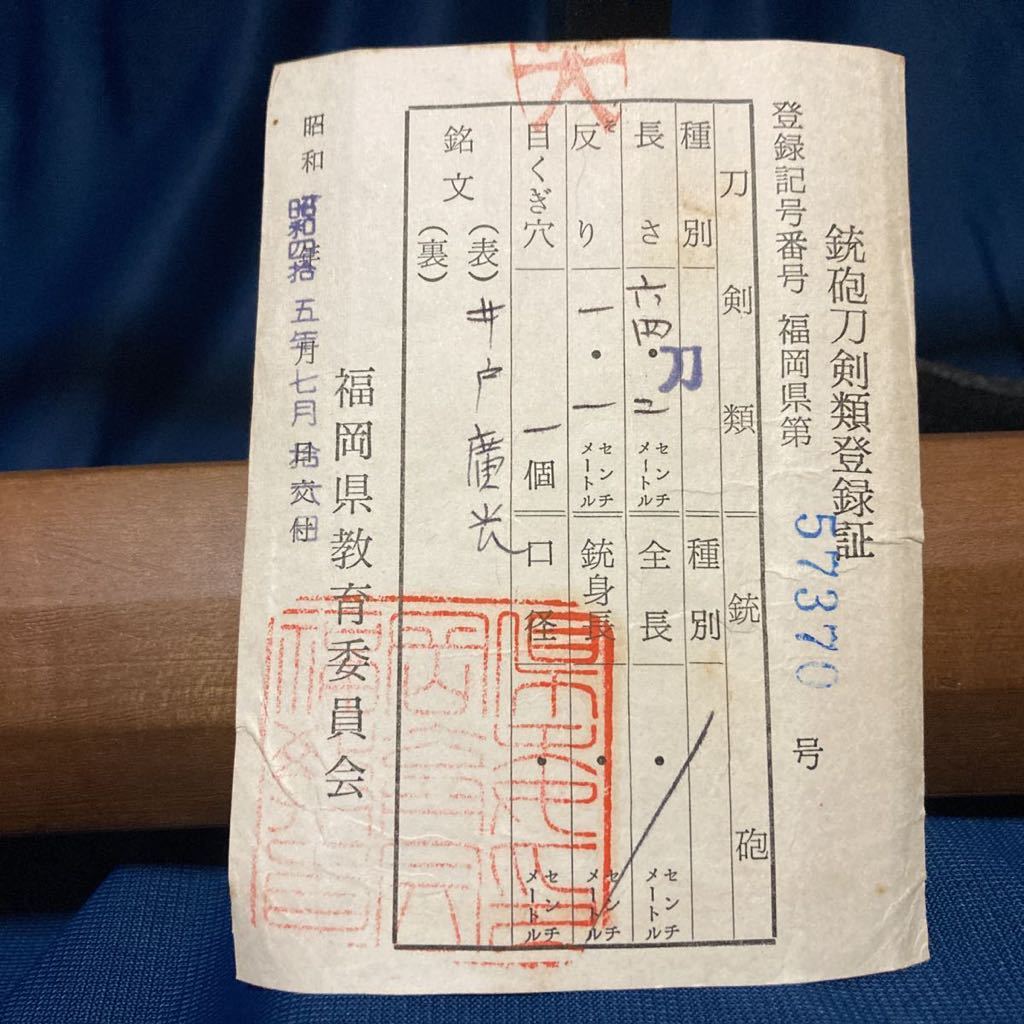 銃砲刀剣類登録証
登録記号番号 福岡県第 57370 号
刀剣類 銃砲
種別 刀 種別
長さ 六四・二 センチメートル 全長 ・ センチメートル
反り そ 一・一 センチメートル 銃身長 ・ センチメートル
目くぎ穴 一個 口径 ・ センチメートル
銘文 (表) 井戸廣光
(裏)
福岡県教育委員会
昭和 年 月 日 交付
昭和四拾五年七月